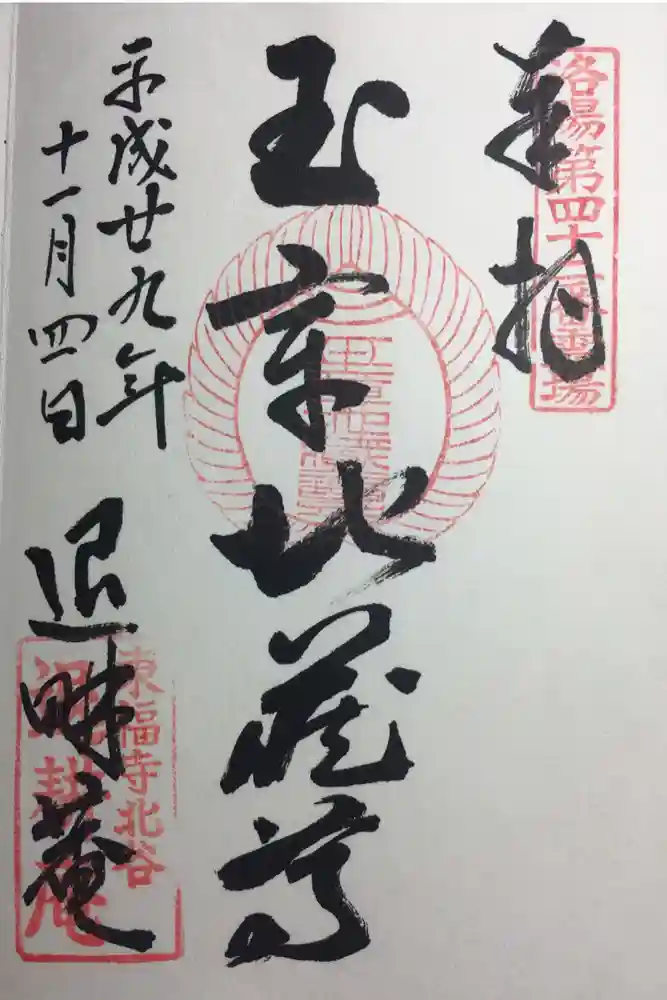 奉拝
洛陽第四十二番霊場
玉章地蔵尊
平成廿九年
十一月四日
退畊庵
東福寺北谷
退耕庵